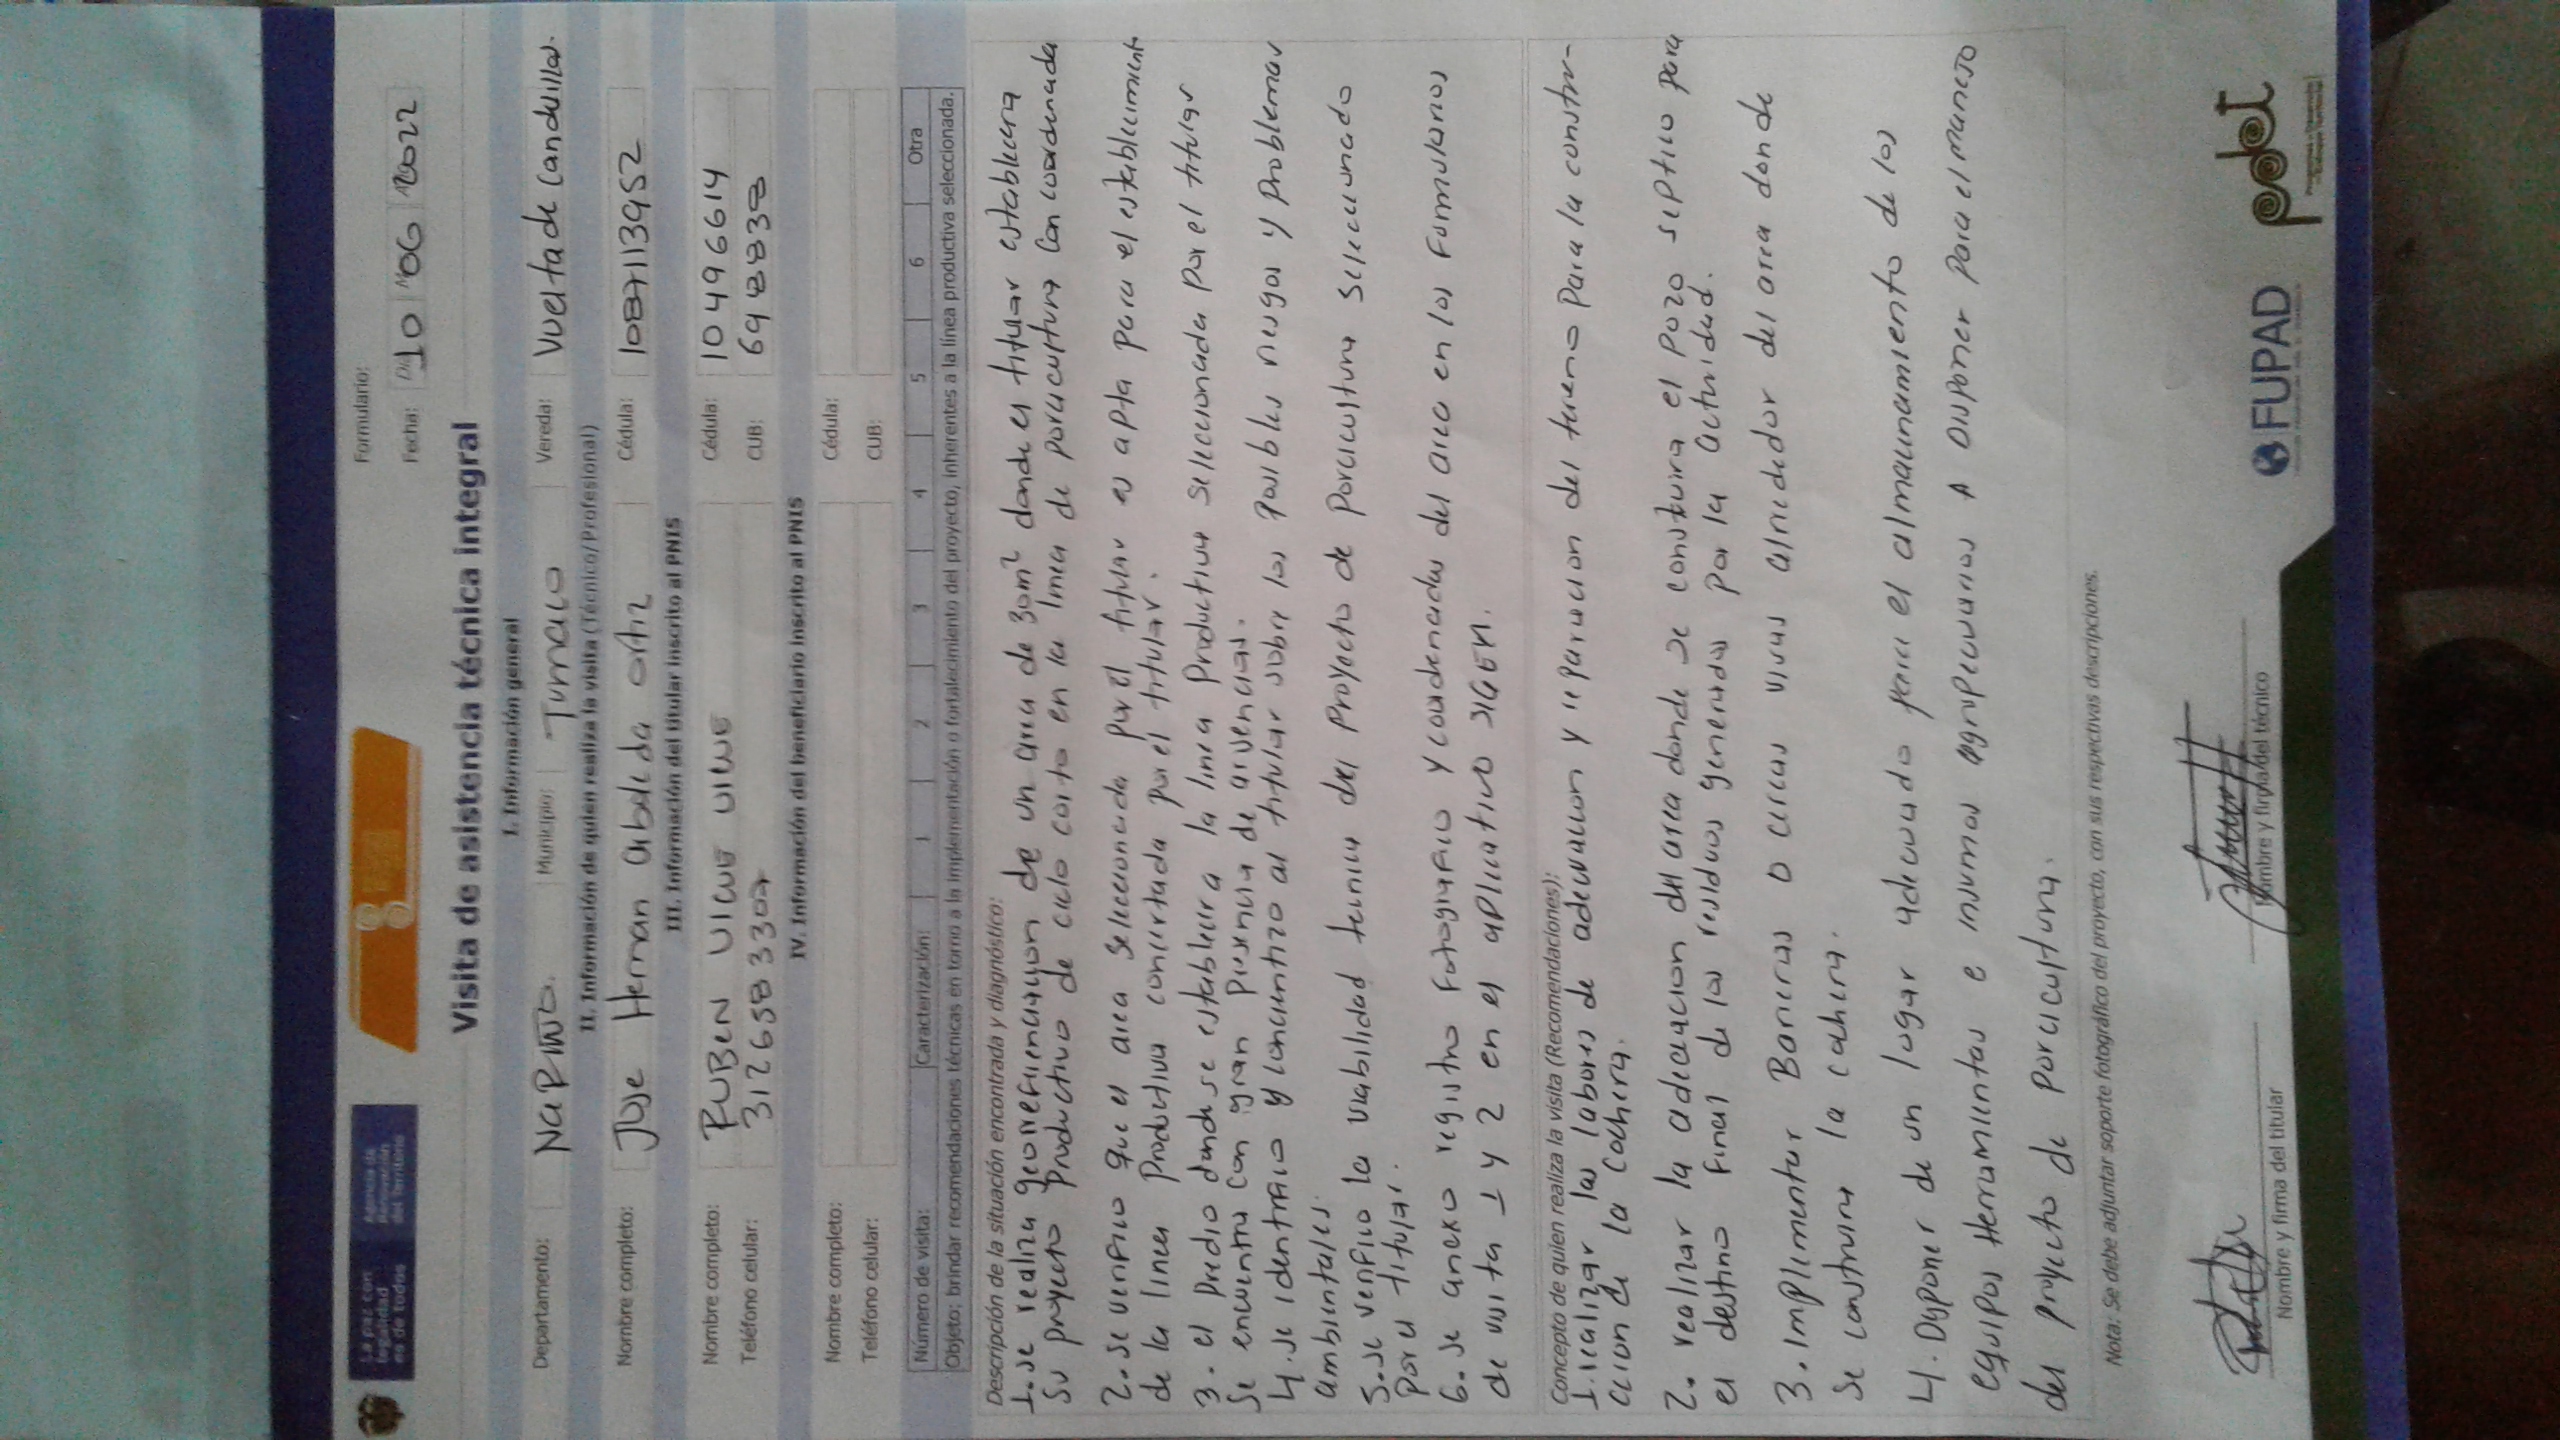 La paz con
legalidad
es de todos
Agencia de
Renovación
del Territorio
Formulario:
Fecha: Día 10 Mes 06 Año 2022
Visita de asistencia técnica integral
I. Información general
Departamento: NaRIÑO. Municipio: Tumaco Vereda: Vuelta de Candelillas.
II. Información de quien realiza la visita (Técnico/Profesional)
Nombre completo: Jose Hernan arboleda ortiz Cédula: 1087113952
III. Información del titular inscrito al PNIS
Nombre completo: RUBEN UICUE UICUE Cédula: 10496614
Teléfono celular: 3126583307 CUB: 6948838
IV. Información del beneficiario inscrito al PNIS
Nombre completo: Cédula:
Teléfono celular: CUB:
Número de visita: Caracterización: 1 2 3 4 5 6 Otra
Objeto: brindar recomendaciones técnicas en torno a la implementación o fortalecimiento del proyecto, inherentes a la línea productiva seleccionada.
Descripción de la situación encontrada y diagnóstico:
1. se realiza georreferenciacion de un area de 30m² donde el titular establecera
su proyecto productivo de ciclo corto en la linea de porcicultura con coordenada
2. se verifico que el area seleccionada por el titular es apta para el establecimiento
de la linea productiva concertada por el titular.
3. el predio donde se establecer a la linea productiva seleccionada por el titular
se encuentra con gran presencia de arvenses.
4. se identifico y concientizo al titular sobre los posibles riesgos y problemas
ambientales.
5. se verifico la viabilidad tecnica del proyecto de porcicultura seleccionado
por el titular.
6. se anexo registro fotografico y coordenadas del area en los formularios
de visita 1 y 2 en el aplicativo SIGEN.
Concepto de quien realiza la visita (Recomendaciones):
1. realizar las labores de adecuacion y reparacion del terreno para la constru-
ccion de la cochera.
2. realizar la adecuacion del area donde se construira el pozo septico para
el destino final de los residuos generados por la actividad.
3. implementar Barreras o cercas vivas alrededor del area donde
se construira la cochera.
4. Disponer de un lugar adecuado para el almacenamiento de los
equipos Herramientas e insumos agropecuarios A disponer para el manejo
del proyecto de porcicultura.
Nota: Se debe adjuntar soporte fotográfico del proyecto, con sus respectivas descripciones.
Nombre y firma del titular
Nombre y firma del técnico
FUPAD
pdet